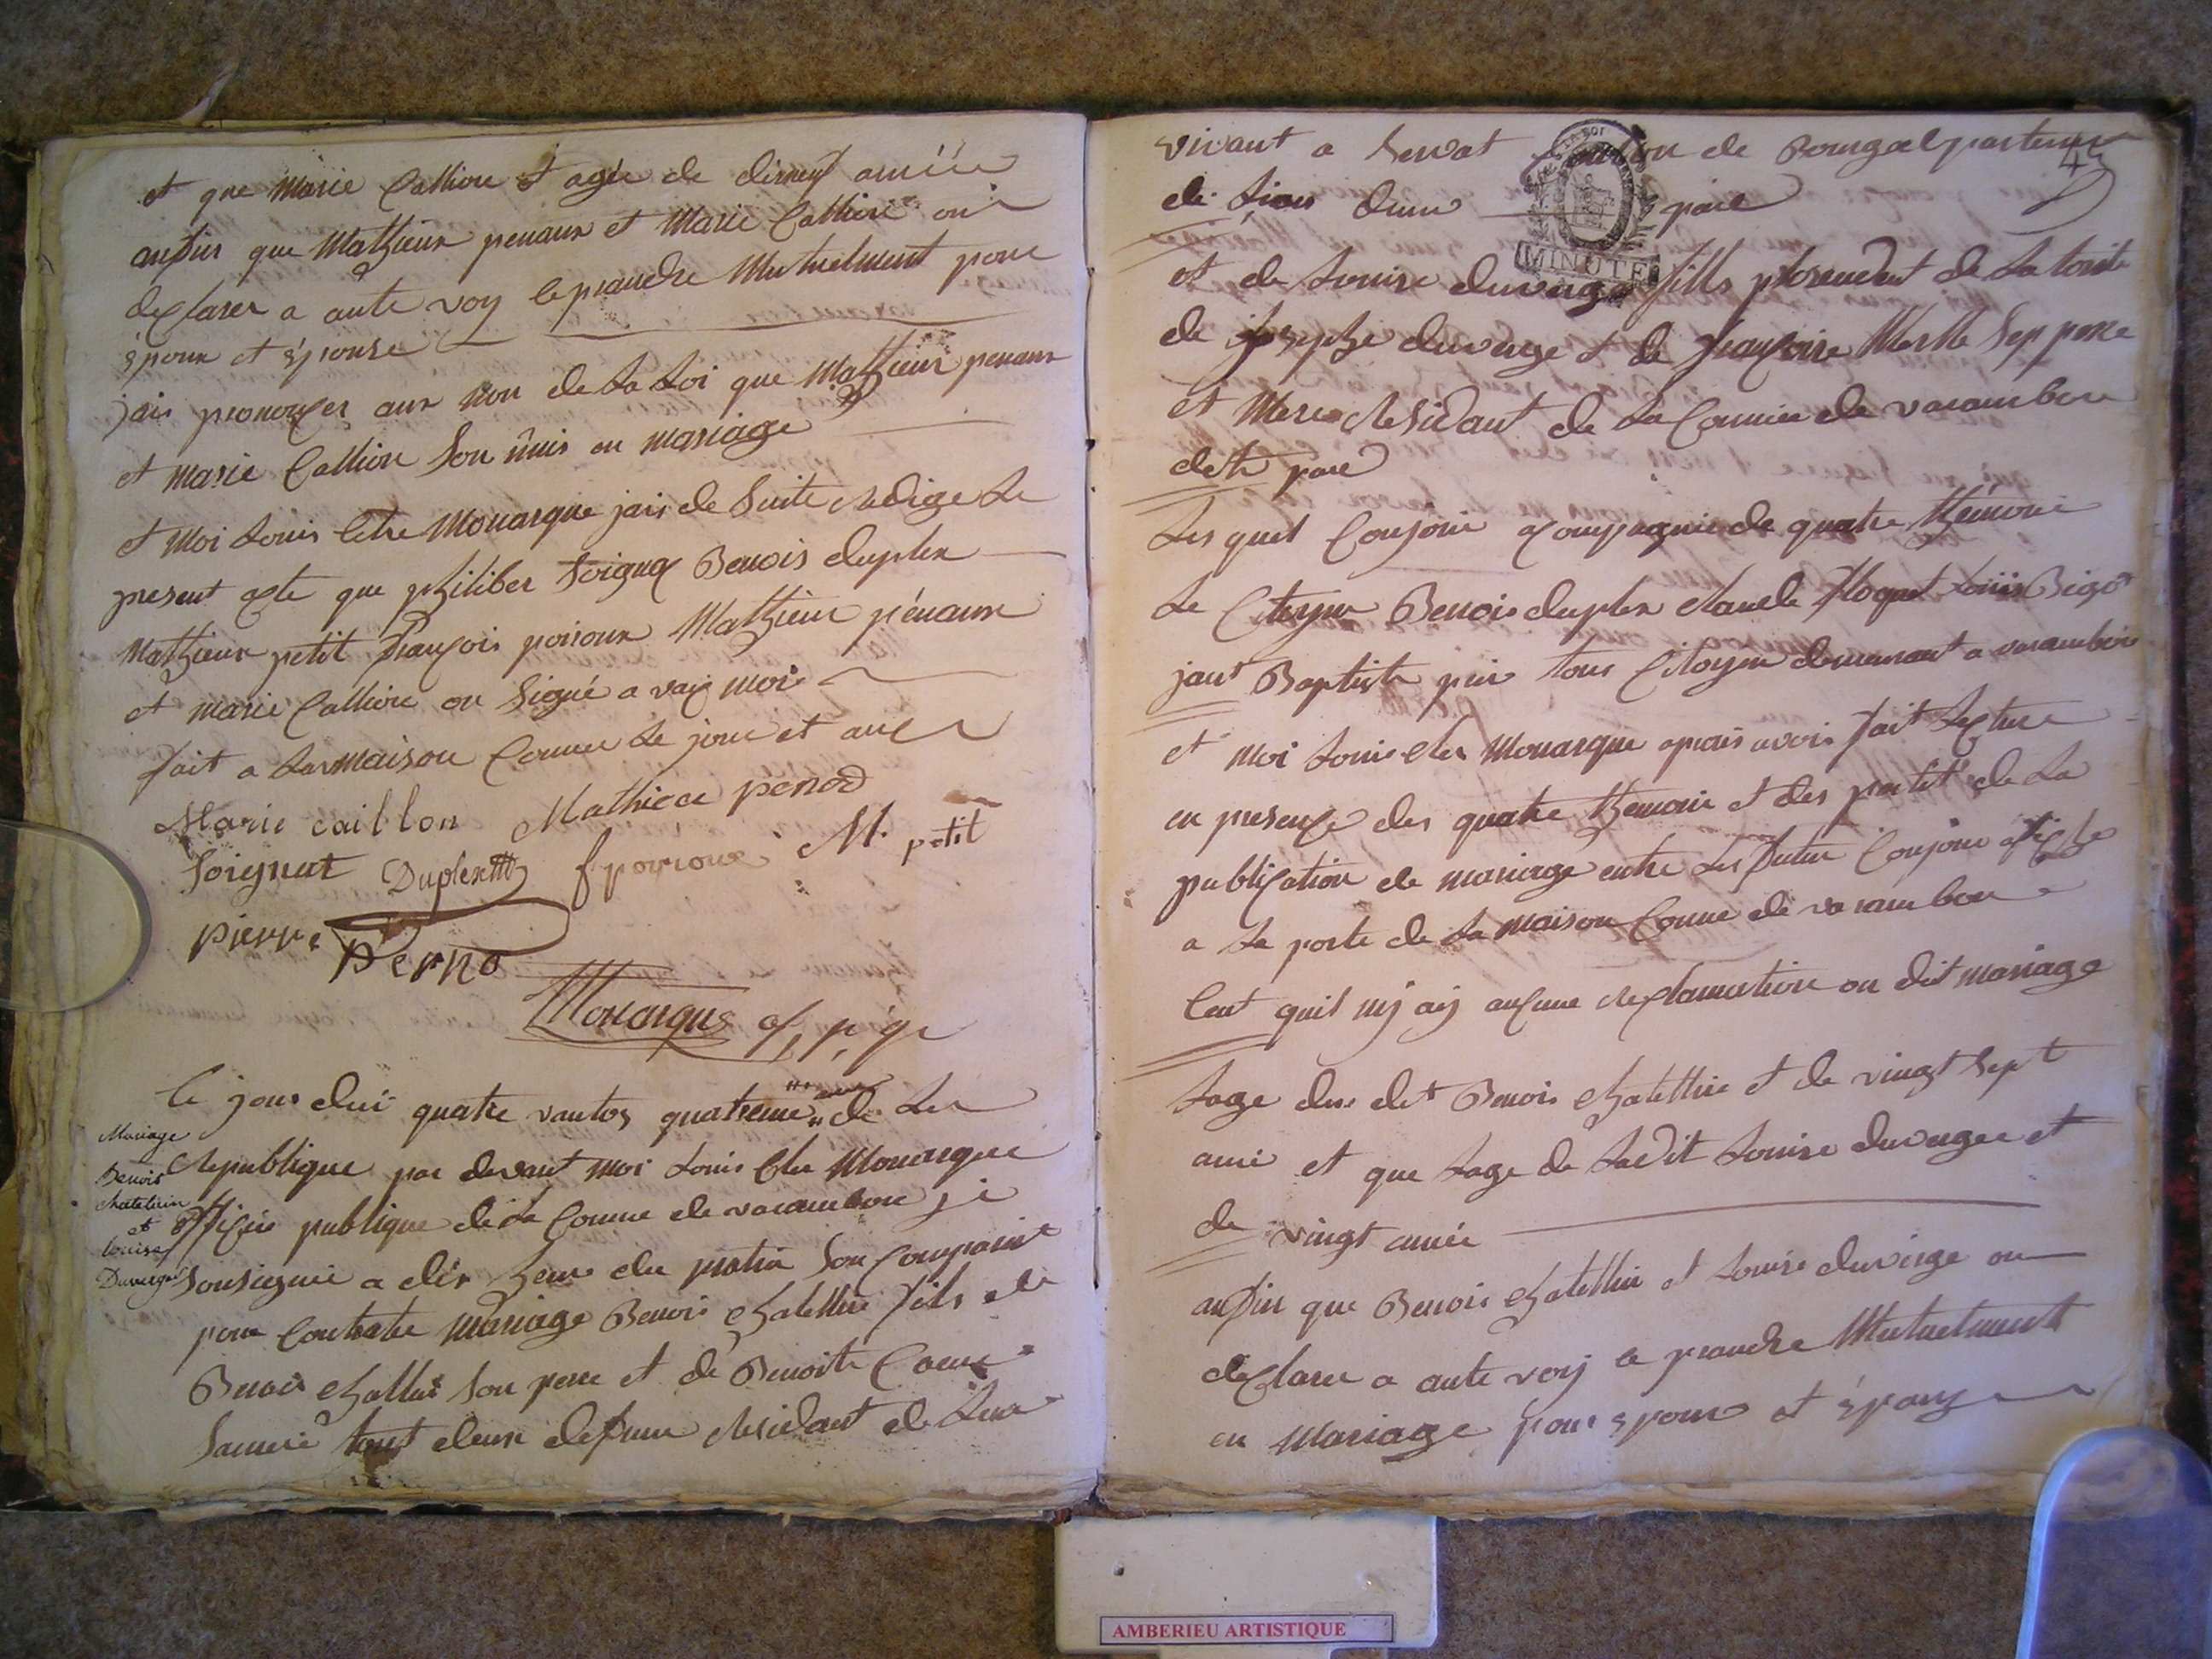 et que Marie Callion et agée de disneuf année
anfin que Mathieux penaux et Marie Callion on
declarer a aute voy se prandre Mutuelment pour
époux et épouse
jais pronomcer aux non de la Loi que Mathieux penaux
et marie Callion Son unis en mariage
et Moi Louis Cler Monarque jais de Suite Redige Le
present acte que philiber Soignat Benois duplex
Mathieux petit François poiroux Mathieux pénaux
et marie Callion on Signé a vaic moi
fait a La maison Comune Le jour et an
Marie caillon Mathieu penod
Soignat Duplex f poiroux M. petit
pierre Perno
Monarque of, p, q
Ce jour dui quatre vantos quatrieme de La
Mariage
Republique par devant moi Louis Cler Monarque
Benois
chatelain
et
Officie publique de La Comune de varambon je
louise
Duverger
Sousigné a dix heure du matin Son Comparu
pour Contratre mariage Benois chatellin fils de
Benois challin Son pere et de Benoite
tout deux defunt Residant de Leur
vivant a Servat Canton de departement
4
de Lien dune part
MINUTE
et de Louise duverge fills de La Loite
de josephe duverge et de françoise Merle Sep pere
et Mere Residant de La Comune de varambon
dotre part
Les quel Conjoin acompagnie de quatre témoin
Le Citoyen Benois duplex claude floquet Louis Bigot
jant Baptiste pin tous Citoyen demeurant a varambon
et Moi Louis Cler Monarque aprais avoir fait Lecture
en presence des quatre témoin et des partit de La
publication de mariage entre Les futur Conjoin afiche
a La porte de La maison Comune de varambon
Cent quil nij aij aucune Reclamation on dit mariage
Lage du dit Benois chatellin et de vingt Sept
anné et que Lage de Ladit Louise duverger et
de vingt année
anfin que Benois chatellin et Louise duverge on
declarer a aute voij se prandre Mutuelment
en Mariage pour epoux et épouze
AMBERIEU ARTISTIQUE